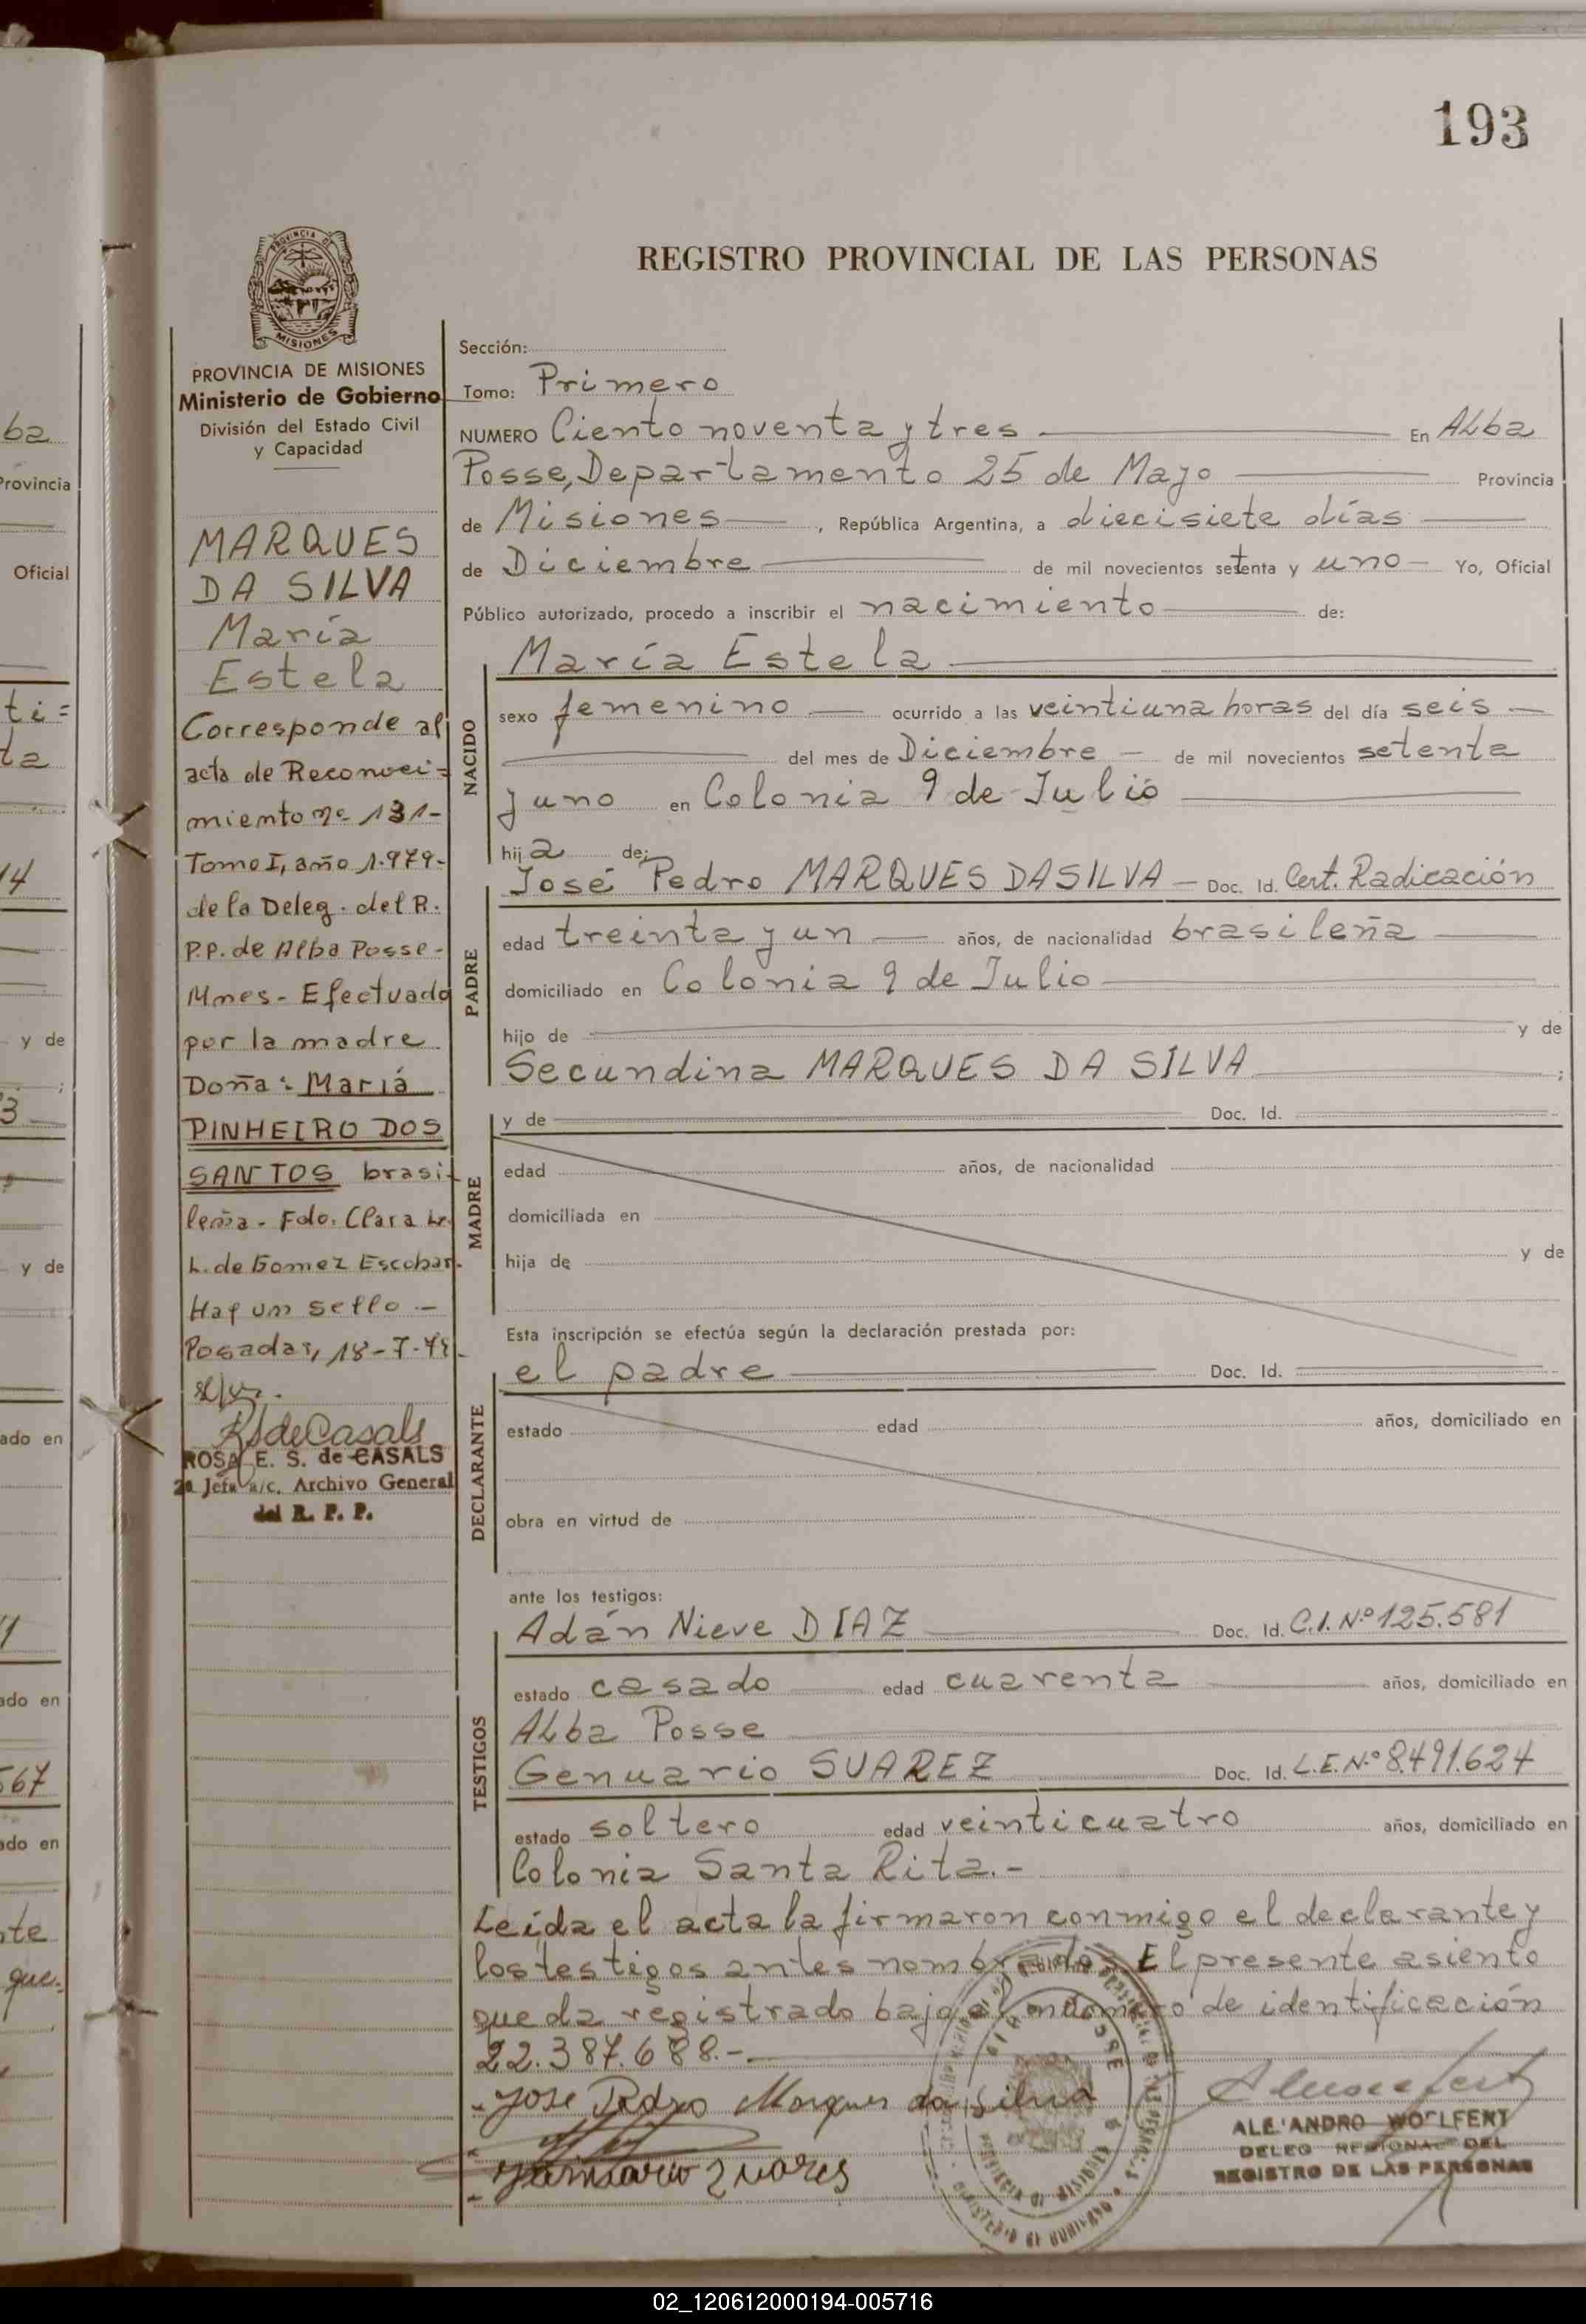 193
REGISTRO PROVINCIAL DE LAS PERSONAS
PROVINCIA DE
MISIONES
PROVINCIA DE MISIONES
Ministerio de Gobierno
División del Estado Civil
y Capacidad
MARQUES
DA SILVA
María
Estela
Corresponde al
acta de Reconoci=
miento nº 131-
Tomo I, año 1.979-
de la Deleg. del R.
P.P. de Alba Posse-
Mnes- Efectuado
por la madre
Doña: María
PINHEIRO DOS
SANTOS brasi-
leña- Fdo. Clara
L. de Gomez Escobar.
Hay un sello.-
Posadas, 18-7-79-
RSdeCasals
ROSA E. S. de CASALS
2a Jefa a/c. Archivo General
del R. P. P.
Sección:
Tomo: Primero
NUMERO Ciento noventa y tres En Alba
Posse, Departamento 25 de Mayo Provincia
de Misiones , República Argentina, a diecisiete días
de Diciembre de mil novecientos setenta y uno Yo, Oficial
Público autorizado, procedo a inscribir el nacimiento de:
NACIDO
María Estela
sexo femenino ocurrido a las veintiuna horas del día seis
del mes de Diciembre de mil novecientos setenta
y uno en Colonia 9 de Julio
hija de:
PADRE
José Pedro MARQUES DA SILVA Doc. Id. Cert. Radicación
edad treinta y un años, de nacionalidad brasileña
domiciliado en Colonia 9 de Julio
hijo de y de
Secundina MARQUES DA SILVA ;
MADRE
y de Doc. Id.
edad años, de nacionalidad
domiciliada en
hija de y de
Esta inscripción se efectúa según la declaración prestada por:
DECLARANTE
el padre Doc. Id.
estado edad años, domiciliado en
obra en virtud de
ante los testigos:
TESTIGOS
Adán Nieve DIAZ Doc. Id. C.I. Nº 125.581
estado casado edad cuarenta años, domiciliado en
Alba Posse
Genuario SUAREZ Doc. Id. L.E. Nº 8.491.624
estado soltero edad veinticuatro años, domiciliado en
Colonia Santa Rita.-
Leída el acta la firmaron conmigo el declarante y
los testigos antes nombrados El presente asiento
queda registrado bajo el número de identificación
22.387.688.-
Jose Pedro Marques da Silva
ALEJANDRO WOLLFENT
DELEG REGIONAL DEL
REGISTRO DE LAS PERSONAS
ba
Provincia
Oficial
ti=
ta
14
y de
;
3
y de
ado en
1
ado en
567
ado en
te
que.
02_120612000194-005716